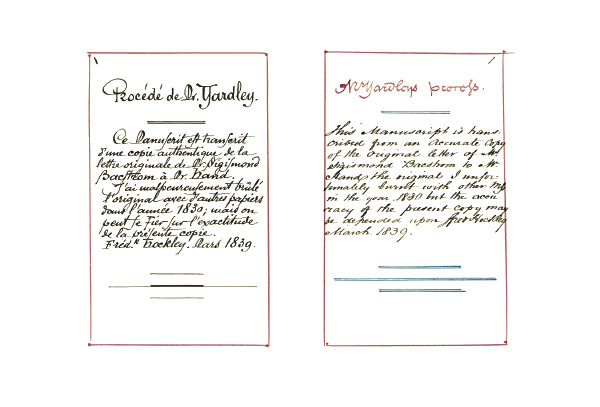 Procédé de Mr. Yardley.
Ce Manuscrit est transcrit
d'une copie authentique de la
lettre originale de Mr. Sigismond
Bacstrom à Mr. Hand.
J'ai malheureusement brûlé
l'original avec d'autres papiers
dans l'année 1830; mais on
peut se fier sur l'exactitude
de la présente copie.
Fréd.k Hockley. Mars 1839.
Mr Yardleys process.
This Manuscript is trans
cribed from an accurate Copy
of the Original letter of Mr
Sigismond Bacstrom to Mr
Hand, the original I unfor-
tunately burnt with other
in the year 1830 but the accu
racy of the present copy may
be depended upon Fred Hockley
March. 1839.